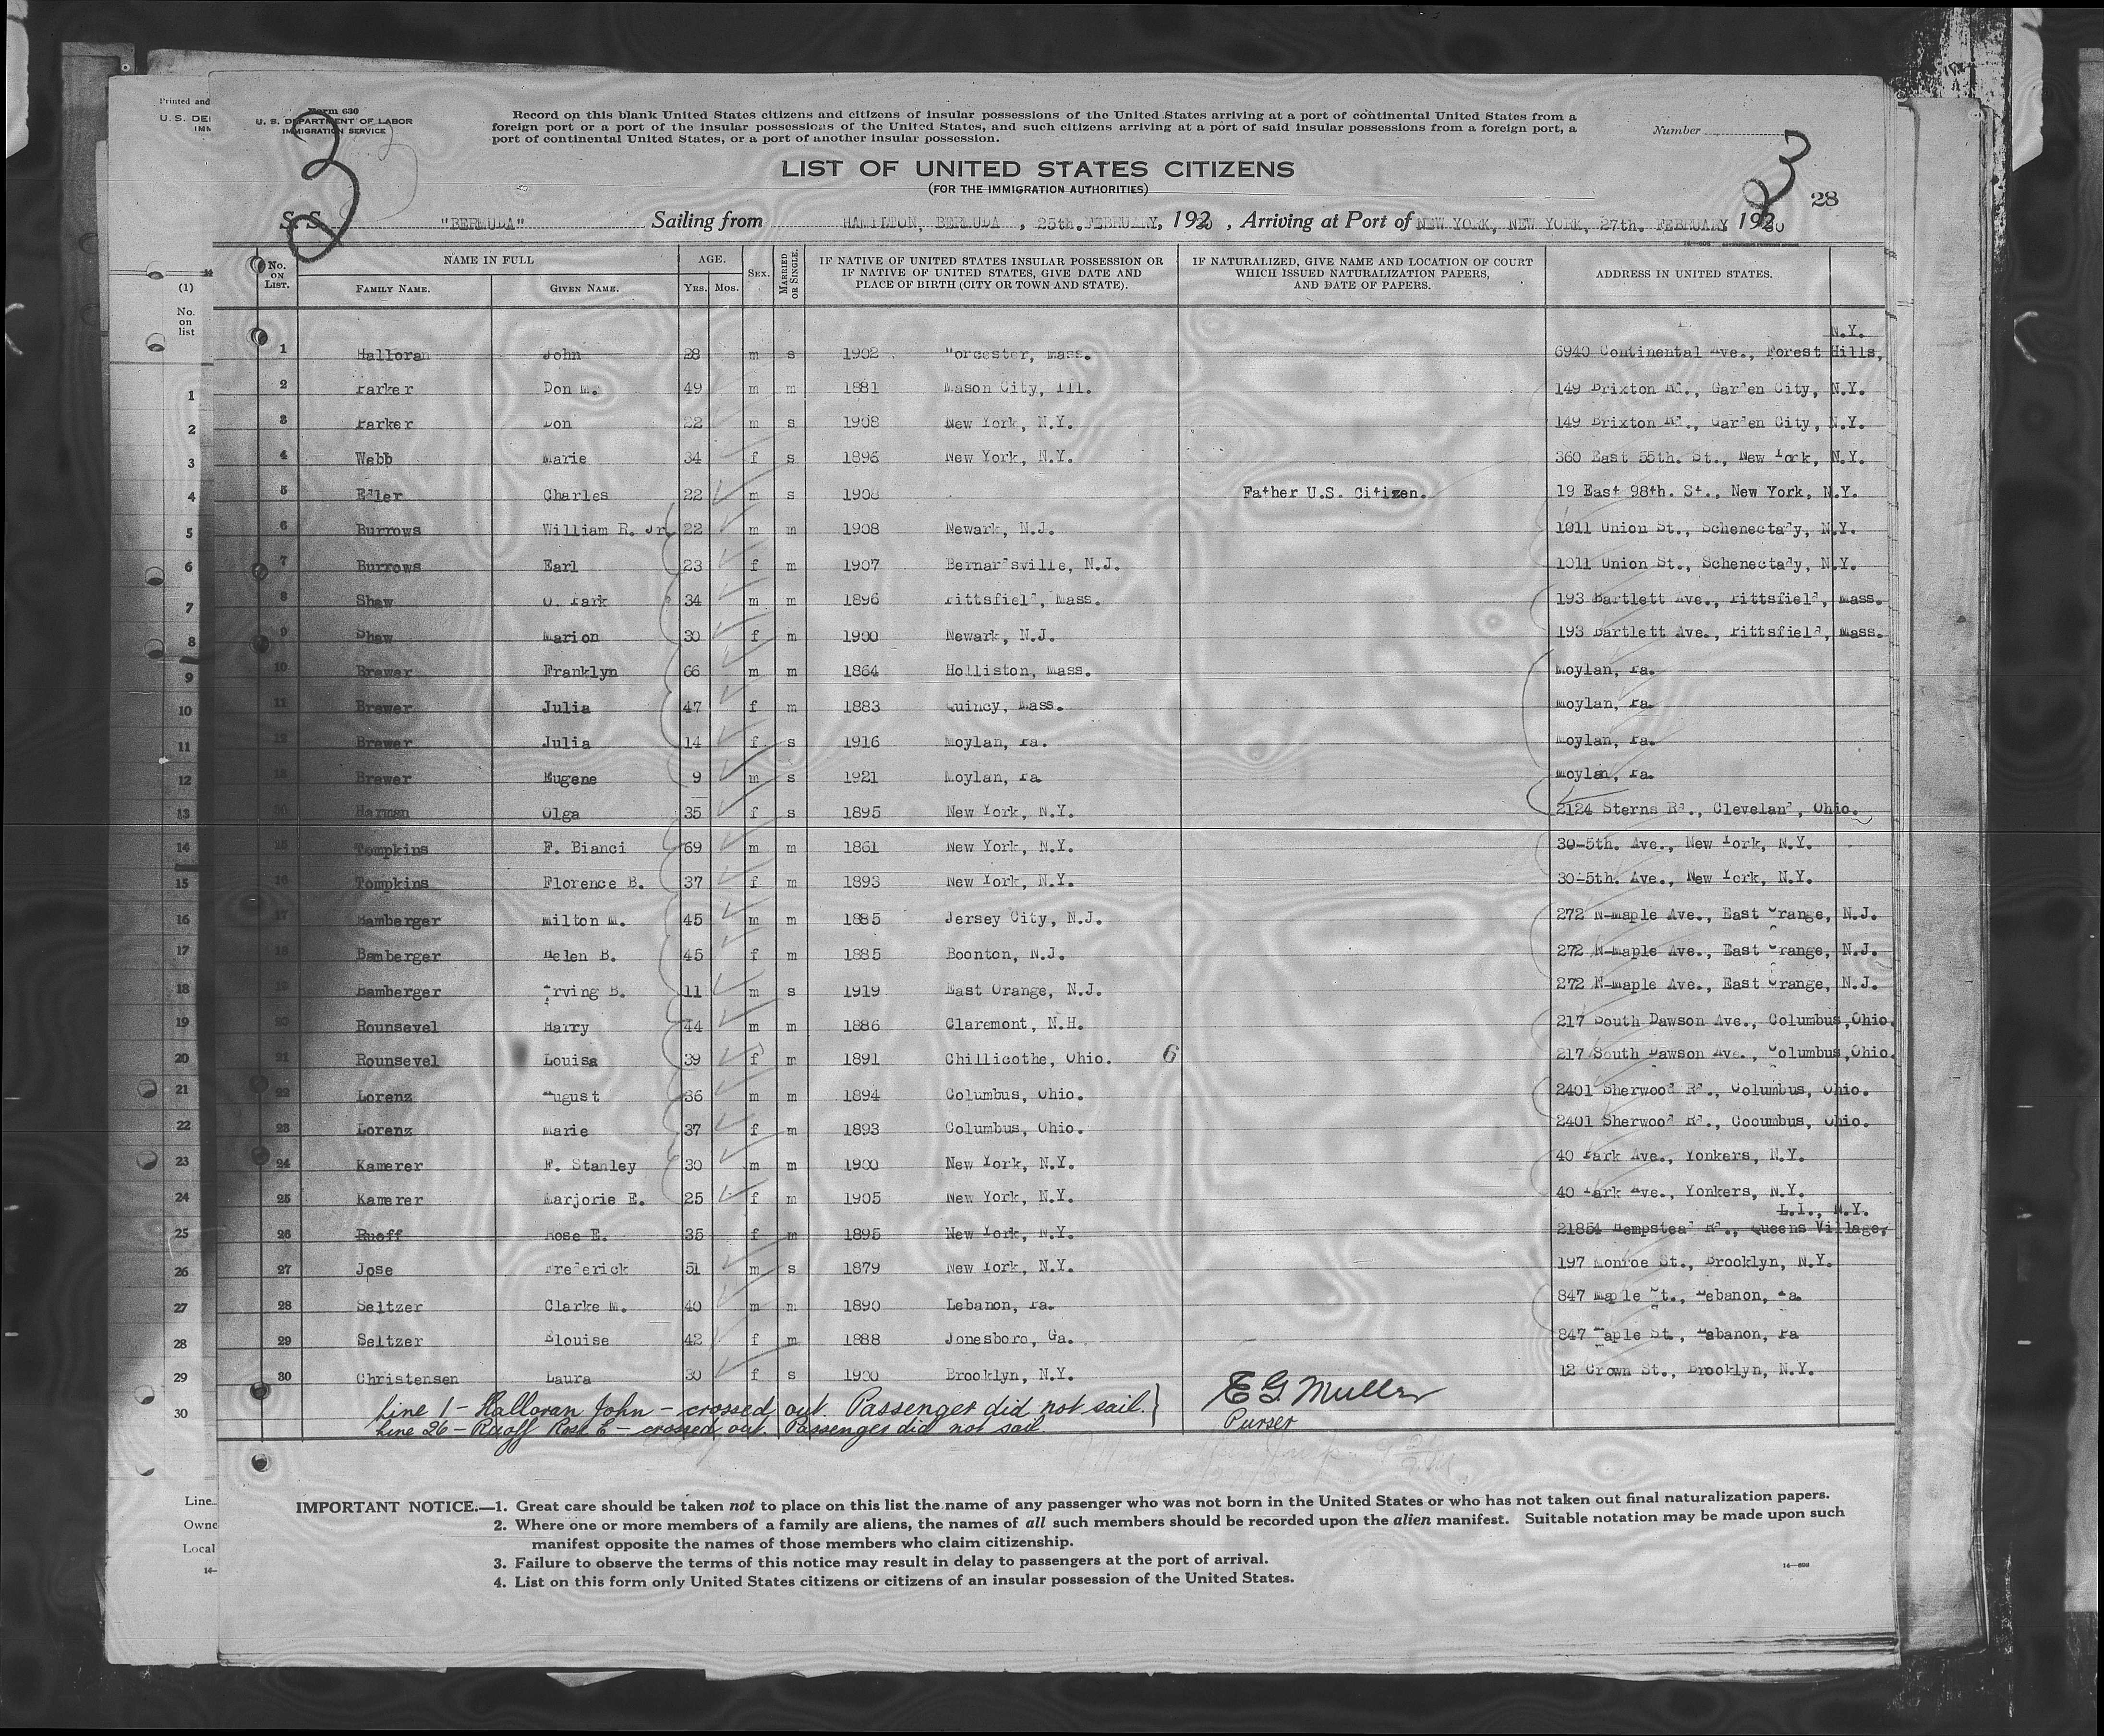 Printed and
U.S. DEI
IMM
Form 630
U. S. DEPARTMENT OF LABOR
IMMIGRATION SERVICE
3
Record on this blank United States citizens and citizens of insular possessions of the United States arriving at a port of continental United States from a
foreign port or a port of the insular possessions of the United States, and such citizens arriving at a port of said insular possessions from a foreign port, a
port of continental United States, or a port of another insular possession.
Number
3
LIST OF UNITED STATES CITIZENS
(FOR THE IMMIGRATION AUTHORITIES)
28
S. S. "BERMUDA" Sailing from HAMILTON, BERMUDA , 25th. FEBRUARY, 1930 , Arriving at Port of NEW YORK, NEW YORK, 27th. FEBRUARY 1930
No. ON LIST. NAME IN FULL FAMILY NAME. GIVEN NAME. AGE. YRS. MOS. SEX. MARRIED OR SINGLE. IF NATIVE OF UNITED STATES INSULAR POSSESSION OR IF NATIVE OF UNITED STATES, GIVE DATE AND PLACE OF BIRTH (CITY OR TOWN AND STATE). IF NATURALIZED, GIVE NAME AND LOCATION OF COURT WHICH ISSUED NATURALIZATION PAPERS, AND DATE OF PAPERS. ADDRESS IN UNITED STATES.
N.Y.
1 Halloran John 28 m s 1902 Worcester, Mass. 6940 Continental Ave., Forest Hills,
2 Parker Don M. 49 m m 1881 Mason City, Ill. 149 Brixton Rd., Garden City, N.Y.
3 Parker Don 22 m s 1908 New York, N.Y. 149 Brixton Rd., Garden City, N.Y.
4 Webb Marie 34 f s 1896 New York, N.Y. 360 East 55th. St., New York, N.Y.
5 Edler Charles 22 m s 1908 Father U.S. Citizen. 19 East 98th. St., New York, N.Y.
6 Burrows William R. Jr. 22 m m 1908 Newark, N.J. 1011 Union St., Schenectady, N.Y.
7 Burrows Earl 23 f m 1907 Bernardsville, N.J. 1011 Union St., Schenectady, N.Y.
8 Shaw O. Park 34 m m 1896 Pittsfield, Mass. 193 Bartlett Ave., Pittsfield, Mass.
9 Shaw Marion 30 f m 1900 Newark, N.J. 193 Bartlett Ave., Pittsfield, Mass.
10 Brewer Franklyn 66 m m 1864 Holliston, Mass. Moylan, Pa.
11 Brewer Julia 47 f m 1883 Quincy, Mass. Moylan, Pa.
12 Brewer Julia 14 f s 1916 Moylan, Pa. Moylan, Pa.
13 Brewer Eugene 9 m s 1921 Moylan, Pa Moylan, Pa.
Harman Olga 35 f s 1895 New York, N.Y. 2124 Sterns Rd., Cleveland, Ohio.
15 Tompkins F. Bianci 69 m m 1861 New York, N.Y. 30-5th. Ave., New York, N.Y.
16 Tompkins Florence B. 37 f m 1893 New York, N.Y. 30-5th. Ave., New York, N.Y.
17 Bamberger Milton M. 45 m m 1885 Jersey City, N.J. 272 N-Maple Ave., East Orange, N.J.
18 Bamberger Helen B. 45 f m 1885 Boonton, N.J. 272 N-Maple Ave., East Orange, N.J.
19 Bamberger Irving B. 11 m s 1919 East Orange, N.J. 272 N-Maple Ave., East Orange, N.J.
20 Rounsevel Harry 44 m m 1886 Claremont, N.H. 217 South Dawson Ave., Columbus,Ohio.
21 Rounsevel Louisa 39 f m 1891 Chillicothe, Ohio. 6 217 South Dawson Ave., Columbus,Ohio.
22 Lorenz August 36 m m 1894 Columbus, Ohio. 2401 Sherwood Rd., Columbus, Ohio.
23 Lorenz Marie 37 f m 1893 Columbus, Ohio. 2401 Sherwood Rd., Cooumbus, Ohio.
24 Kamerer F. Stanley 30 m m 1900 New York, N.Y. 40 Park Ave., Yonkers, N.Y.
25 Kamerer Marjorie E. 25 f m 1905 New York, N.Y. 40 Park Ave., Yonkers, N.Y.
L.I., N.Y.
26 Ruoff Rose E. 35 f m 1895 New York, N.Y. 21854 Hempstead Rd., Queens Village,
27 Jose Frederick 51 m s 1879 New York, N.Y. 197 Monroe St., Brooklyn, N.Y.
28 Seltzer Clarke M. 40 m m 1890 Lebanon, Pa. 847 Maple St., Lebanon, Pa.
29 Seltzer Elouise 42 f m 1888 Jonesboro, Ga. 847 Maple St., Labanon, Pa
30 Christensen Laura 30 f s 1900 Brooklyn, N.Y. 12 Crown St., Brooklyn, N.Y.
Line 1 - Halloran John - crossed out. Passenger did not sail. } E G Muller
Line 26 - Ruoff Rose E - crossed out. Passenger did not sail Purser
IMPORTANT NOTICE.—1. Great care should be taken not to place on this list the name of any passenger who was not born in the United States or who has not taken out final naturalization papers.
2. Where one or more members of a family are aliens, the names of all such members should be recorded upon the alien manifest. Suitable notation may be made upon such
manifest opposite the names of those members who claim citizenship.
3. Failure to observe the terms of this notice may result in delay to passengers at the port of arrival.
4. List on this form only United States citizens or citizens of an insular possession of the United States.
14—608
(1)
No.
on
list
1
2
3
4
5
6
7
8
9
10
11
12
13
14
15
16
17
18
19
20
21
22
23
24
25
26
27
28
29
30
Line
Owne
Local
14-